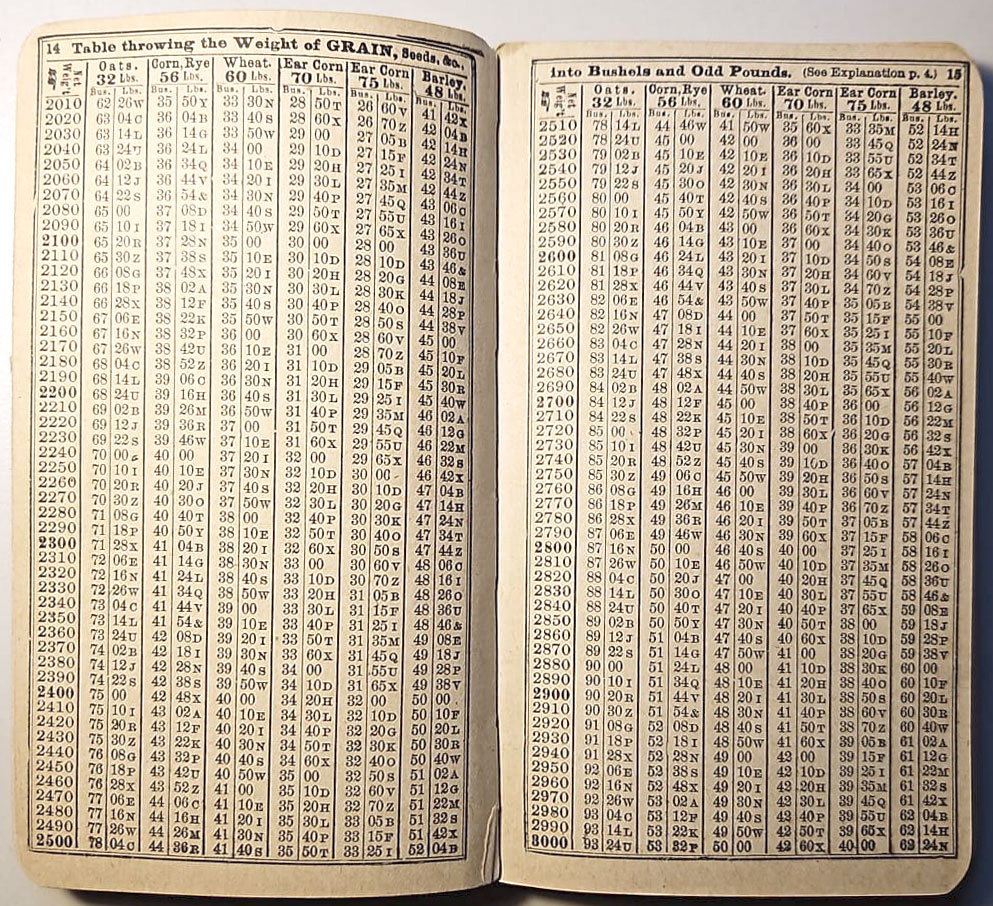 14 Table throwing the Weight of GRAIN, Seeds, &c.,
Net Weig't Oats. Corn, Rye Wheat. Ear Corn Ear Corn Barley.
32 Lbs. 56 Lbs. 60 Lbs. 70 Lbs. 75 Lbs. 48 Lbs.
Bus. Lbs. Bus. Lbs. Bus. Lbs. Bus. Lbs. Bus. Lbs. Bus. Lbs.
2010 62 26W 35 50Y 33 30N 28 50T 26 60V 41 42X
2020 63 04C 36 04B 33 40S 28 60X 26 70Z 42 04B
2030 63 14L 36 14G 33 50W 29 00 27 05B 42 14H
2040 63 24U 36 24L 34 00 29 10D 27 15F 42 24N
2050 64 02B 36 34Q 34 10E 29 20H 27 25I 42 34T
2060 64 12J 36 44V 34 20I 29 30L 27 35M 42 44Z
2070 64 22S 36 54& 34 30N 29 40P 27 45Q 43 06C
2080 65 00 37 08D 34 40S 29 50T 27 55U 43 16I
2090 65 10I 37 18I 34 50W 29 60X 27 65X 43 26O
2100 65 20R 37 28N 35 00 30 00 28 00 43 36U
2110 65 30Z 37 38S 35 10E 30 10D 28 10D 43 46&
2120 66 08G 37 48X 35 20I 30 20H 28 20G 44 08E
2130 66 18P 38 02A 35 30N 30 30L 28 30K 44 18J
2140 66 28X 38 12F 35 40S 30 40P 28 40O 44 28P
2150 67 06E 38 22K 35 50W 30 50T 28 50S 44 38V
2160 67 16N 38 32P 36 00 30 60X 28 60V 45 00
2170 67 26W 38 42U 36 10E 31 00 28 70Z 45 10F
2180 68 04C 38 52Z 36 20I 31 10D 29 05B 45 20L
2190 68 14L 39 06C 36 30N 31 20H 29 15F 45 30R
2200 68 24U 39 16H 36 40S 31 30L 29 25I 45 40W
2210 69 02B 39 26M 36 50W 31 40P 29 35M 46 02A
2220 69 12J 39 36R 37 00 31 50T 29 45Q 46 12G
2230 69 22S 39 46W 37 10E 31 60X 29 55U 46 22M
2240 70 00 40 00 37 20I 32 00 29 65X 46 32S
2250 70 10I 40 10E 37 30N 32 10D 30 00 46 42X
2260 70 20R 40 20J 37 40S 32 20H 30 10D 47 04B
2270 70 30Z 40 30O 37 50W 32 30L 30 20G 47 14H
2280 71 08G 40 40T 38 00 32 40P 30 30K 47 24N
2290 71 18P 40 50Y 38 10E 32 50T 30 40O 47 34T
2300 71 28X 41 04B 38 20I 32 60X 30 50S 47 44Z
2310 72 06E 41 14G 38 30N 33 00 30 60V 48 06C
2320 72 16N 41 24L 38 40S 33 10D 30 70Z 48 16I
2330 72 26W 41 34Q 38 50W 33 20H 31 05B 48 26O
2340 73 04C 41 44V 39 00 33 30L 31 15F 48 36U
2350 73 14L 41 54& 39 10E 33 40P 31 25I 48 46&
2360 73 24U 42 08D 39 20I 33 50T 31 35M 49 08E
2370 74 02B 42 18I 39 30N 33 60X 31 45Q 49 18J
2380 74 12J 42 28N 39 40S 34 00 31 55U 49 28P
2390 74 22S 42 38S 39 50W 34 10D 31 65X 49 38V
2400 75 00 42 48X 40 00 34 20H 32 00 50 00
2410 75 10I 43 02A 40 10E 34 30L 32 10D 50 10F
2420 75 20R 43 12F 40 20I 34 40P 32 20G 50 20L
2430 75 30Z 43 22K 40 30N 34 50T 32 30K 50 30R
2440 76 08G 43 32P 40 40S 34 60X 32 40O 50 40W
2450 76 18P 43 42U 40 50W 35 00 32 50S 51 02A
2460 76 28X 43 52Z 41 00 35 10D 32 60V 51 12G
2470 77 06E 44 06C 41 10E 35 20H 32 70Z 51 22M
2480 77 16N 44 16H 41 20I 35 30L 33 05B 51 32S
2490 77 26W 44 26M 41 30N 35 40P 33 15F 51 42X
2500 78 04C 44 36R 41 40S 35 50T 33 25I 52 04B
into Bushels and Odd Pounds. (See Explanation p. 4.) 15
Net Weig't Oats. Corn, Rye Wheat. Ear Corn Ear Corn Barley.
32 Lbs. 56 Lbs. 60 Lbs. 70 Lbs. 75 Lbs. 48 Lbs.
Bus. Lbs. Bus. Lbs. Bus. Lbs. Bus. Lbs. Bus. Lbs. Bus. Lbs.
2510 78 14L 44 46W 41 50W 35 60X 33 35M 52 14H
2520 78 24U 45 00 42 00 36 00 33 45Q 52 24N
2530 79 02B 45 10E 42 10E 36 10D 33 55U 52 34T
2540 79 12J 45 20J 42 20I 36 20H 33 65X 52 44Z
2550 79 22S 45 30O 42 30N 36 30L 34 00 53 06C
2560 80 00 45 40T 42 40S 36 40P 34 10D 53 16I
2570 80 10I 45 50Y 42 50W 36 50T 34 20G 53 26O
2580 80 20R 46 04B 43 00 36 60X 34 30K 53 36U
2590 80 30Z 46 14G 43 10E 37 00 34 40O 53 46&
2600 81 08G 46 24L 43 20I 37 10D 34 50S 54 08E
2610 81 18P 46 34Q 43 30N 37 20H 34 60V 54 18J
2620 81 28X 46 44V 43 40S 37 30L 34 70Z 54 28P
2630 82 06E 46 54& 43 50W 37 40P 35 05B 54 38V
2640 82 16N 47 08D 44 00 37 50T 35 15F 55 00
2650 82 26W 47 18I 44 10E 37 60X 35 25I 55 10F
2660 83 04C 47 28N 44 20I 38 00 35 35M 55 20L
2670 83 14L 47 38S 44 30N 38 10D 35 45Q 55 30R
2680 83 24U 47 48X 44 40S 38 20H 35 55U 55 40W
2690 84 02B 48 02A 44 50W 38 30L 35 65X 56 02A
2700 84 12J 48 12F 45 00 38 40P 36 00 56 12G
2710 84 22S 48 22K 45 10E 38 50T 36 10D 56 22M
2720 85 00 48 32P 45 20I 38 60X 36 20G 56 32S
2730 85 10I 48 42U 45 30N 39 00 36 30K 56 42X
2740 85 20R 48 52Z 45 40S 39 10D 36 40O 57 04B
2750 85 30Z 49 06C 45 50W 39 20H 36 50S 57 14H
2760 86 08G 49 16H 46 00 39 30L 36 60V 57 24N
2770 86 18P 49 26M 46 10E 39 40P 36 70Z 57 34T
2780 86 28X 49 36R 46 20I 39 50T 37 05B 57 44Z
2790 87 06E 49 46W 46 30N 39 60X 37 15F 58 06C
2800 87 16N 50 00 46 40S 40 00 37 25I 58 16I
2810 87 26W 50 10E 46 50W 40 10D 37 35M 58 26O
2820 88 04C 50 20J 47 00 40 20H 37 45Q 58 36U
2830 88 14L 50 30O 47 10E 40 30L 37 55U 58 46&
2840 88 24U 50 40T 47 20I 40 40P 37 65X 59 08E
2850 89 02B 50 50Y 47 30N 40 50T 38 00 59 18J
2860 89 12J 51 04B 47 40S 40 60X 38 10D 59 28P
2870 89 22S 51 14G 47 50W 41 00 38 20G 59 38V
2880 90 00 51 24L 48 00 41 10D 38 30K 60 00
2890 90 10I 51 34Q 48 10E 41 20H 38 40O 60 10F
2900 90 20R 51 44V 48 20I 41 30L 38 50S 60 20L
2910 90 30Z 51 54& 48 30N 41 40P 38 60V 60 30R
2920 91 08G 52 08D 48 40S 41 50T 38 70Z 60 40W
2930 91 18P 52 18I 48 50W 41 60X 39 05B 61 02A
2940 91 28X 52 28N 49 00 42 00 39 15F 61 12G
2950 92 06E 52 38S 49 10E 42 10D 39 25I 61 22M
2960 92 16N 52 48X 49 20I 42 20H 39 35M 61 32S
2970 92 26W 53 02A 49 30N 42 30L 39 45Q 61 42X
2980 93 04C 53 12F 49 40S 42 40P 39 55U 62 04B
2990 93 14L 53 22K 49 50W 42 50T 39 65X 62 14H
3000 93 24U 53 32P 50 00 42 60X 40 00 62 24N